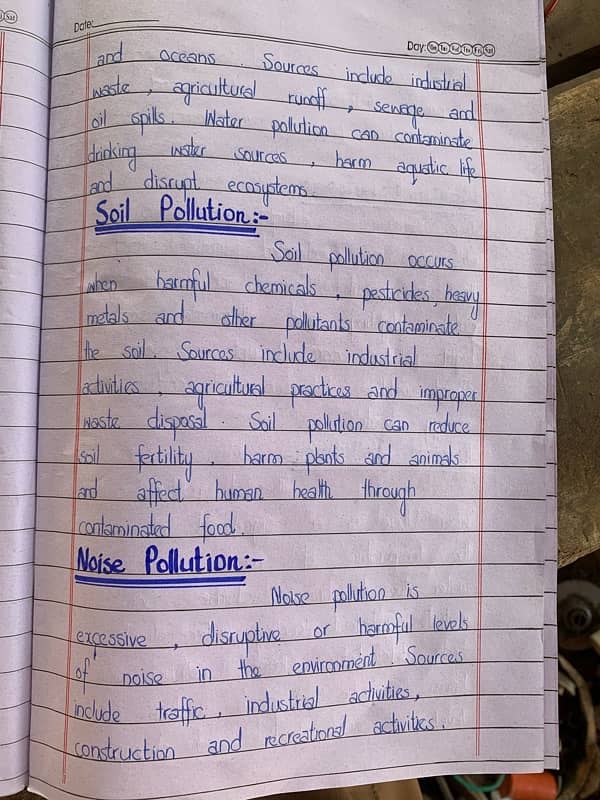 Sat
Date:
Day: Sun Mon Tue Wed Thu Fri Sat
and oceans. Sources include industrial
waste, agricultural runoff, sewage and
oil spills. Water pollution can contaminate
drinking water sources, harm aquatic life
and disrupt ecosystems.
Soil Pollution:-
Soil pollution occurs
when harmful chemicals, pesticides, heavy
metals and other pollutants contaminate
the soil. Sources include industrial
activities, agricultural practices and improper
waste disposal. Soil pollution can reduce
soil fertility, harm plants and animals
and affect human health through
contaminated food.
Noise Pollution:-
Noise pollution is
excessive, disruptive or harmful levels
of noise in the environment. Sources
include traffic, industrial activities,
construction and recreational activities.